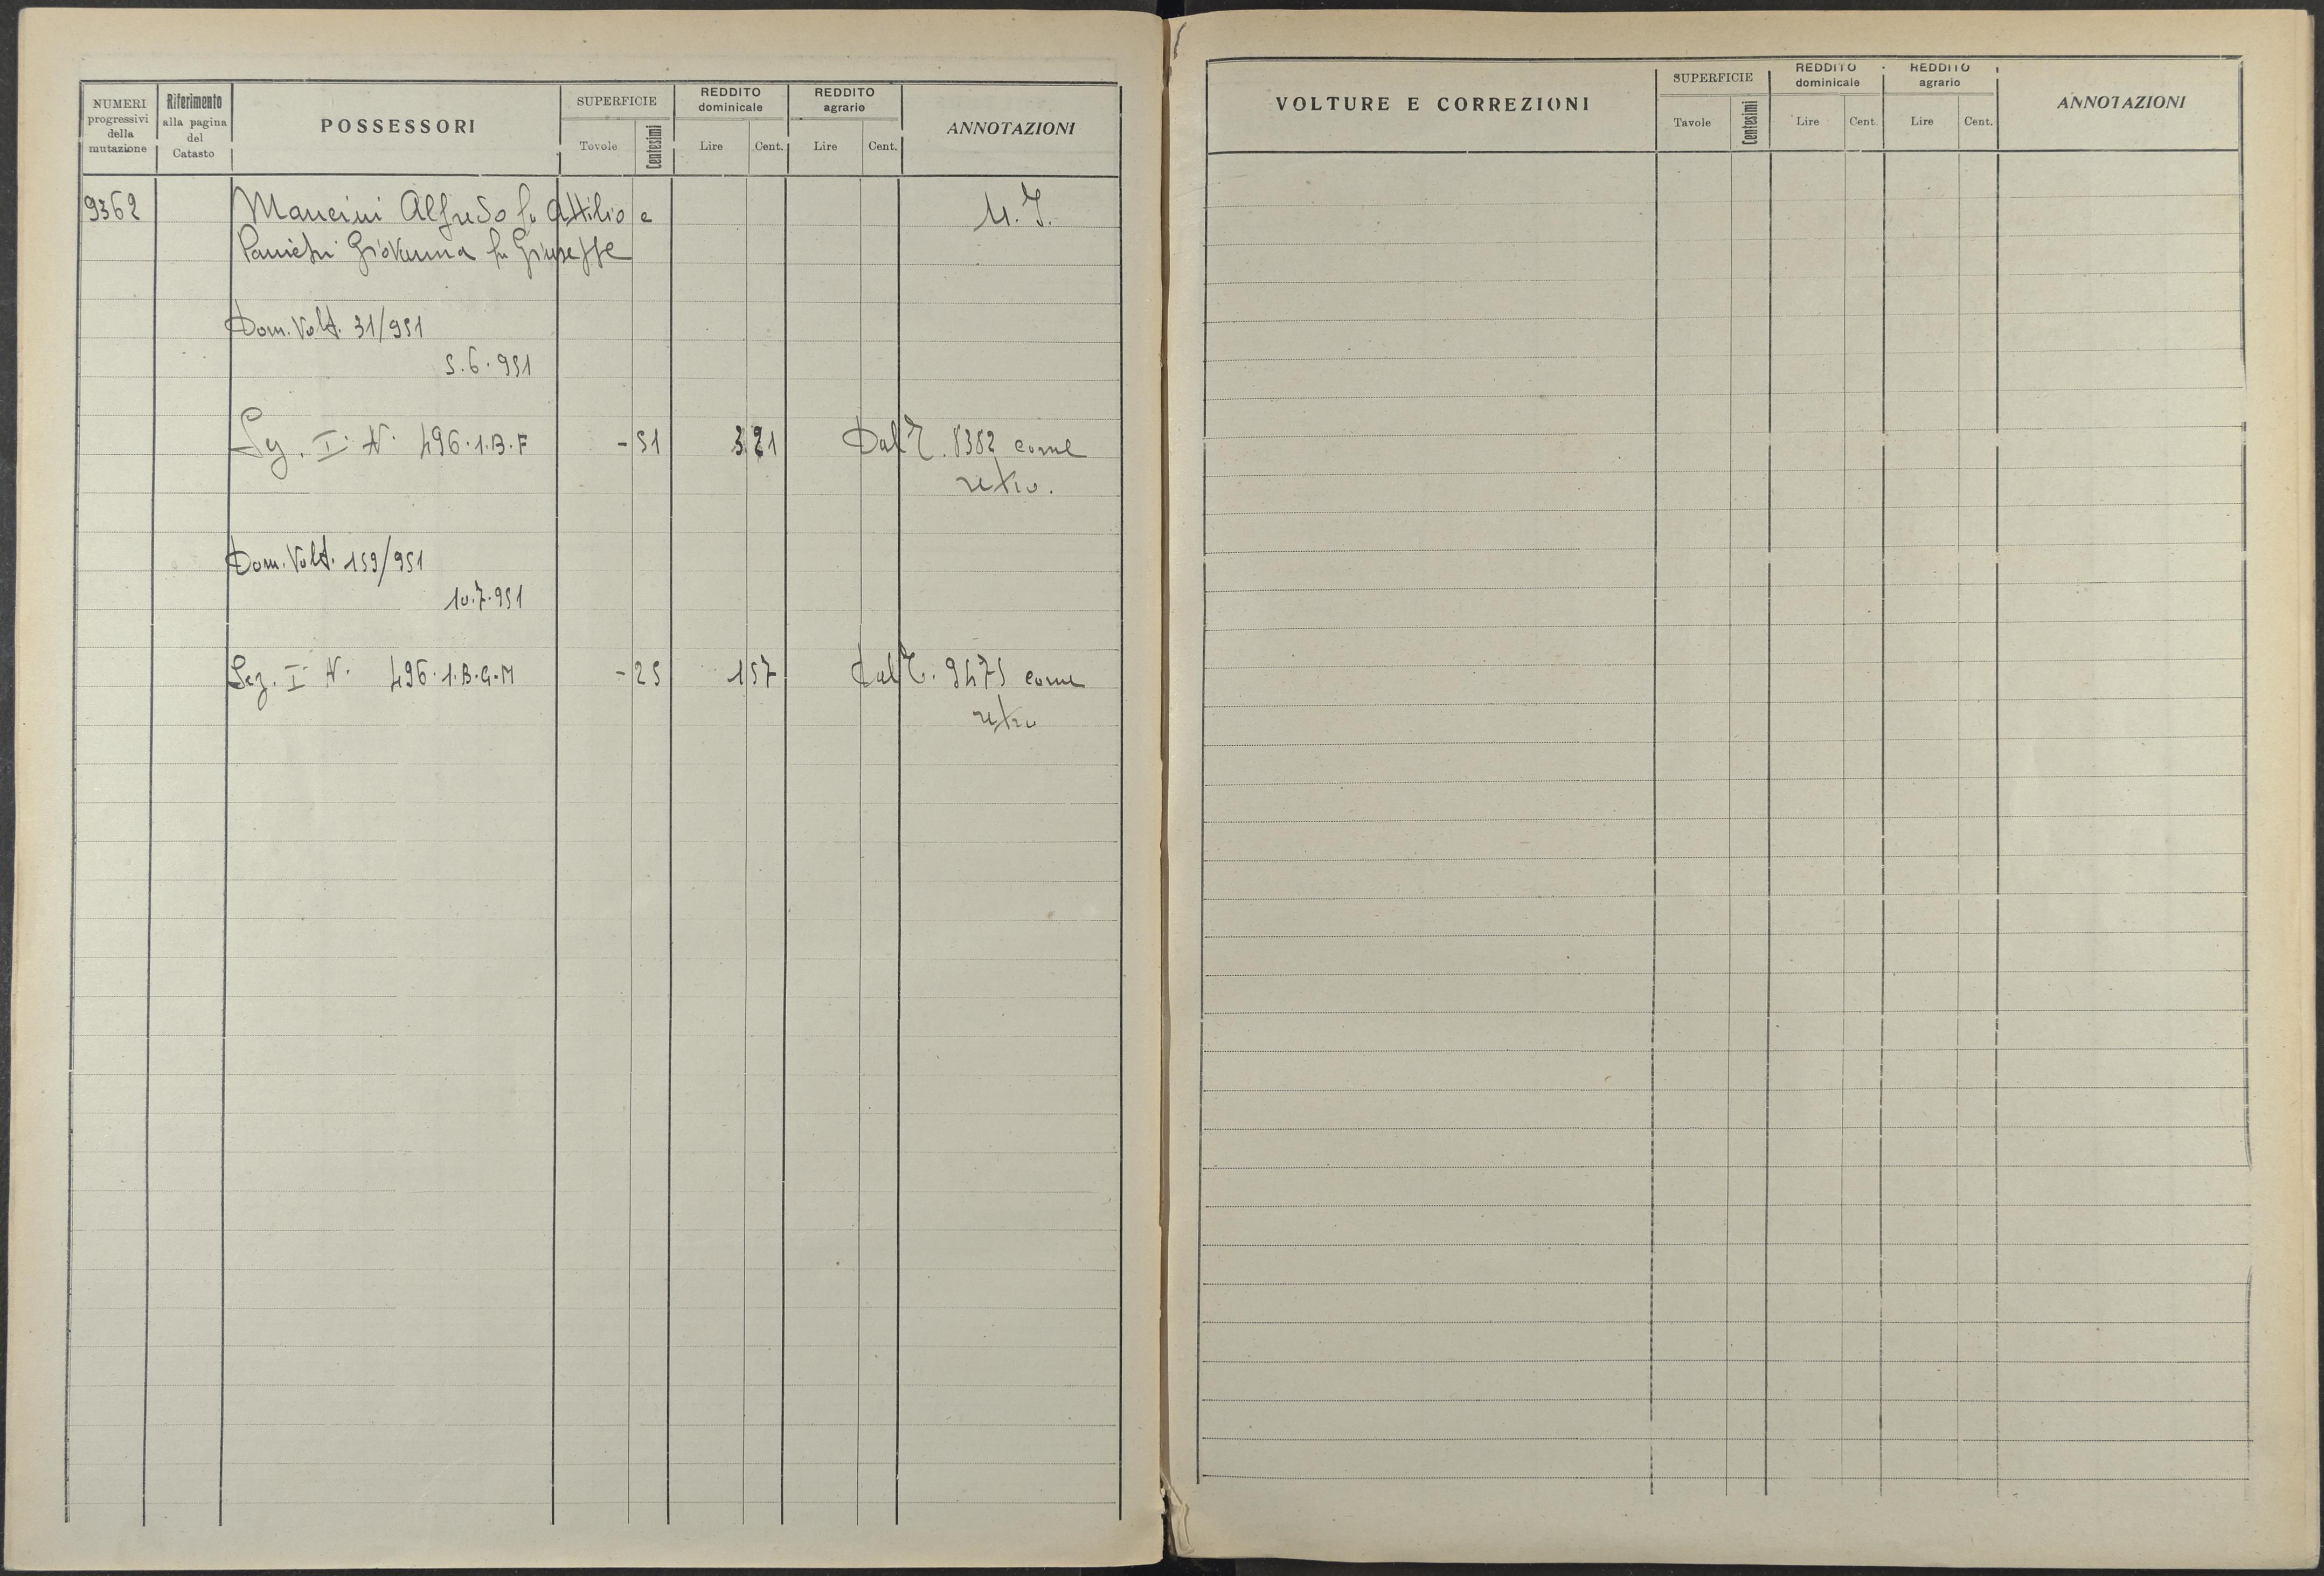 NUMERI progressivi della mutazione
Riferimento alla pagina del Catasto
POSSESSORI
SUPERFICIE
Tavole
Centesimi
REDDITO dominicale
Lire
Cent.
REDDITO agrario
Lire
Cent.
ANNOTAZIONI
9362
Mancini Alfredo fu Attilio e
Giovanna fu Giuseppe
Dom. Volt. 31/951
5.6.951
Sez. I N. 496.1.B.F - 51 3 21 Dal T. 8382 come
retro.
Dom. Volt. 159/951
10.7.951
Sez. I N. 496.1.B.G.M - 25 1 57 Dal T. 9475 come
retro
VOLTURE E CORREZIONI
SUPERFICIE
Tavole
Centesimi
REDDITO dominicale
Lire
Cent.
REDDITO agrario
Lire
Cent.
ANNOTAZIONI